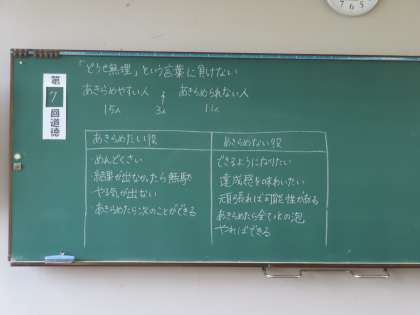 「どうせ無理」という言葉に負けない
第7回道徳
あきらめやすい人 あきらめられない人
15人 3人 11人
あきらめたい役 あきらめない役
・めんどくさい
・結果が出なかったら無駄
・やる気が出ない
・あきらめたら次のことができる
できるようになりたい
達成感を味わいたい
頑張れば可能性がある
あきらめたら全て水の泡
やればできる